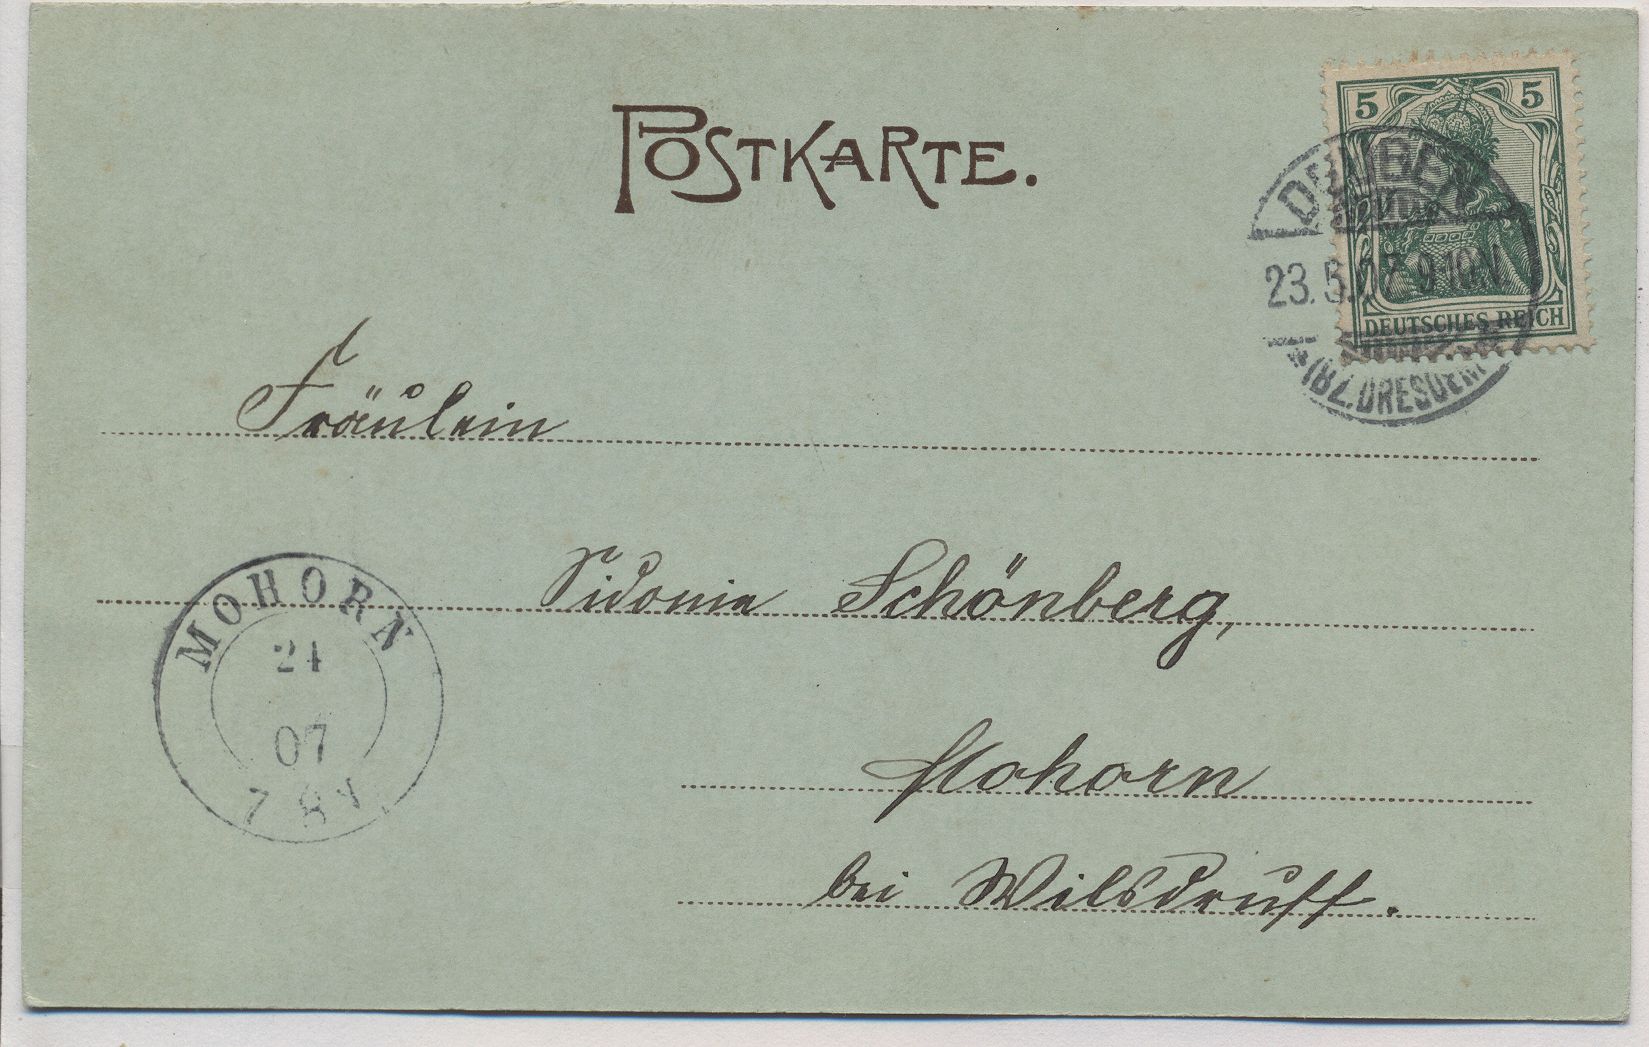 POSTKARTE.
5 5
DEUBEN
23.5.07. 9-10N
DEUTSCHES REICH
*(BZ.DRESDEN)
Fräulein
Sidonie Schönberg,
MOHORN
24
07
7 8 V
Mohorn
bei Wilsdruff.